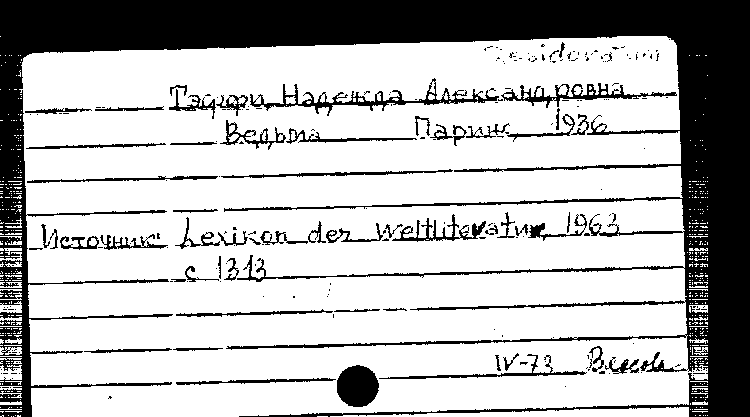 Desideratum
Тэффи, Надежда Александровна
Ведьма Париж, 1936
Источник: Lexikon der Weltliteratur, 1963
с 1313
IV-73 Власова